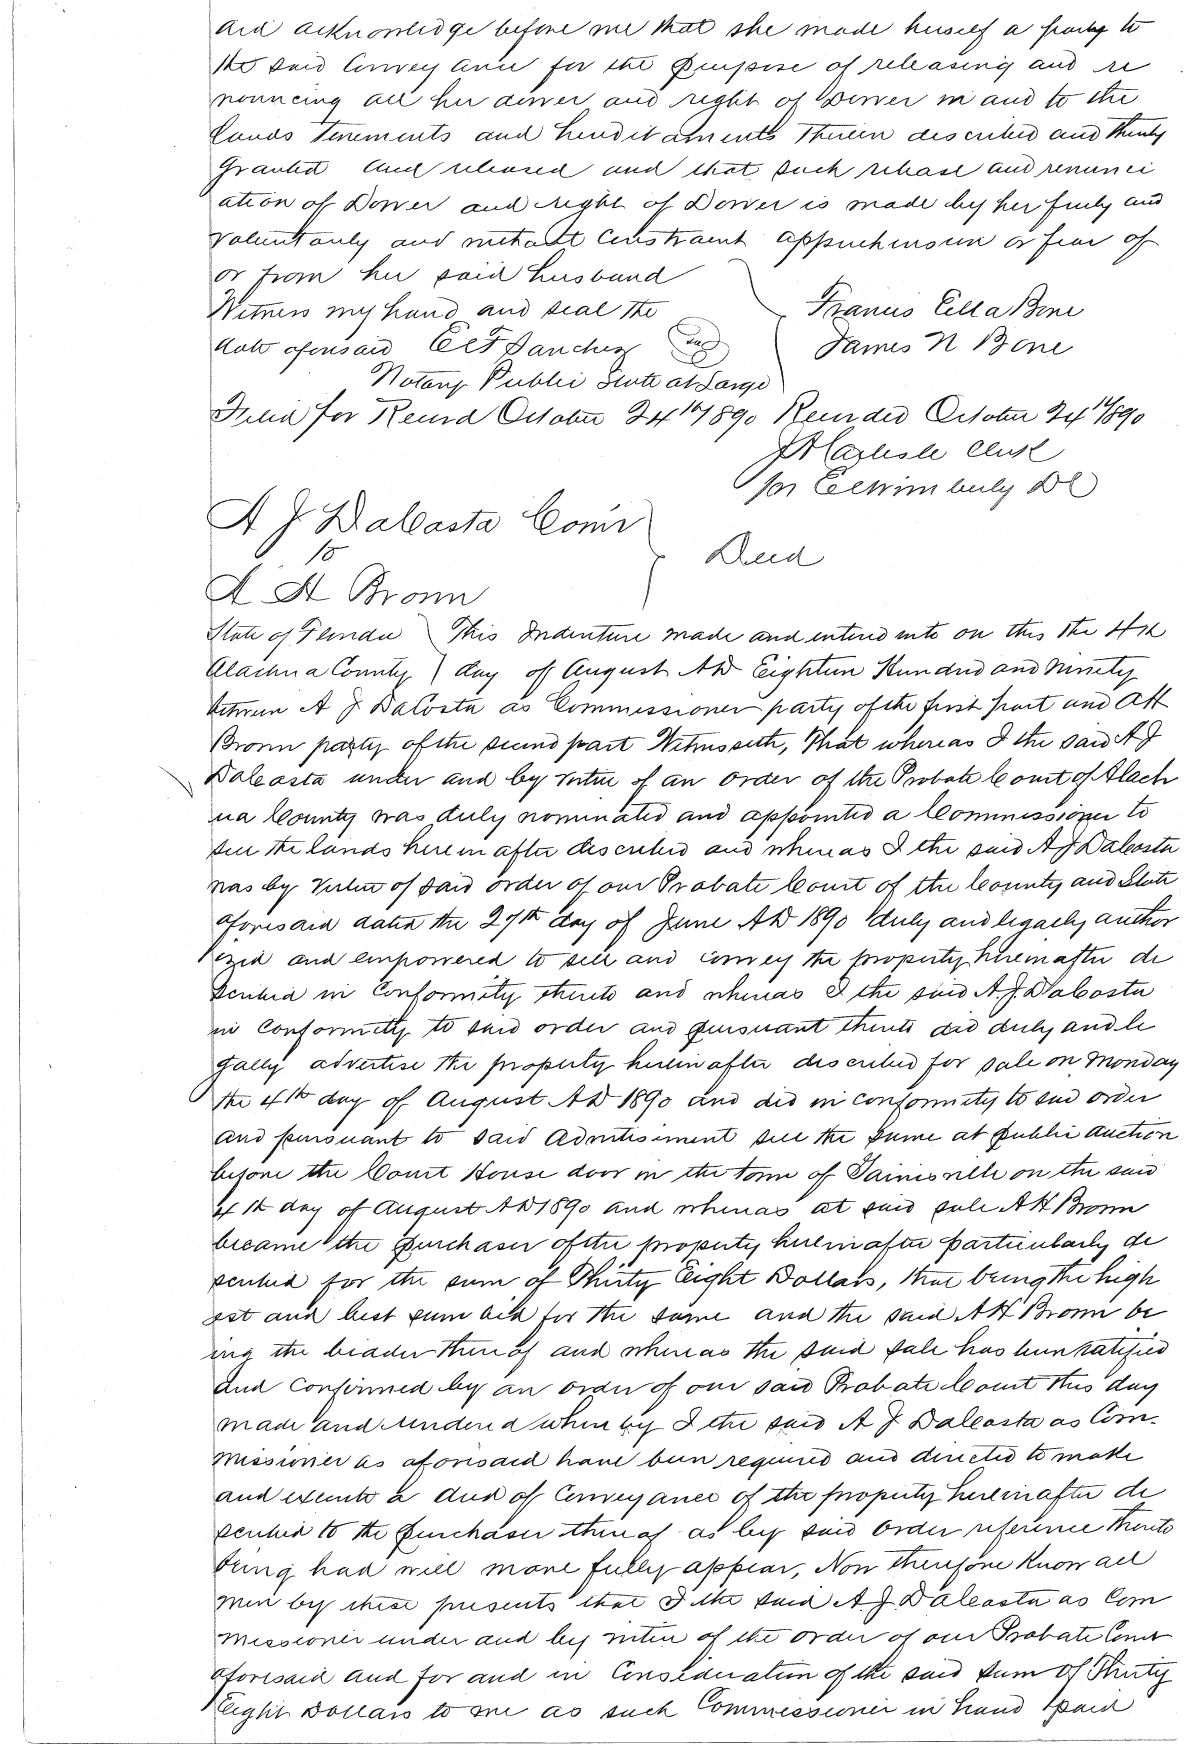 did acknowledge before me that she made herself a party to
the said Conveyance for the purpose of releasing and re
nouncing all her dower and right of Dower in and to the
lands Tenements and hereditaments Therein described and thereby
granted and released and that such release and renunci
ation of Dower and right of Dower is made by her freely and
voluntarily and without Constraint apprehension or fear of
or from her said husband
Witness my hand and seal the Francis Ella Bone
date aforesaid E C F Sanchez James N Bone
Notary Public State at Large
Filed for Record October 24th 1890 Recorded October 24th 1890
J A Carlisle Clerk
per E E Wimberly DC
A J DaCosta Com'r
to Deed
A H Brown
State of Florida This Indenture made and entered into on this the 4th
Alachua County day of August AD Eighteen Hundred and Ninety
between A J DaCosta as Commissioner party of the first part and AH
Brown party of the second part Witnesseth, That whereas I the said A J
DaCosta under and by virtue of an order of the Probate Court of Alach
ua County was duly nominated and appointed a Commissioner to
sell the lands herein after described and whereas I the said A J DaCosta
was by Virtue of said order of our Probate Court of the County and State
aforesaid dated the 27th day of June AD 1890 duly and legally author
ized and empowered to sell and convey the property hereinafter de
scribed in Conformity thereto and whereas I the said A. J. DaCosta
in Conformity to said order and pursuant thereto did duly and le
gally advertise the property herein after described for sale on Monday
the 4th day of August AD 1890 and did in conformity to said order
and pursuant to said Advertisement sell the same at public auction
before the Court House door in the town of Gainesville on the said
4th day of August AD 1890 and whereas at said sale AH Brown
became the purchaser of the property herein after particularly de
scribed for the sum of Thirty Eight Dollars, that being the high
est and best sum bid for the same and the said AH Brown be
ing the bidder thereof and whereas the said sale has been ratified
and confirmed by an order of our said Probate Court this day
made and rendered whereby I the said A J DaCosta as Com-
missioner as aforesaid have been required and directed to make
and execute a deed of Conveyance of the property hereinafter de
scribed to the purchaser thereof as by said Order reference thereto
being had will more fully appear, Now therefore Know all
men by these presents that I the said A. J. DaCosta as Com
missioner under and by virtue of the order of our Probate Court
aforesaid and for and in Consideration of the said sum of Thirty
Eight Dollars to me as such Commissioner in hand paid